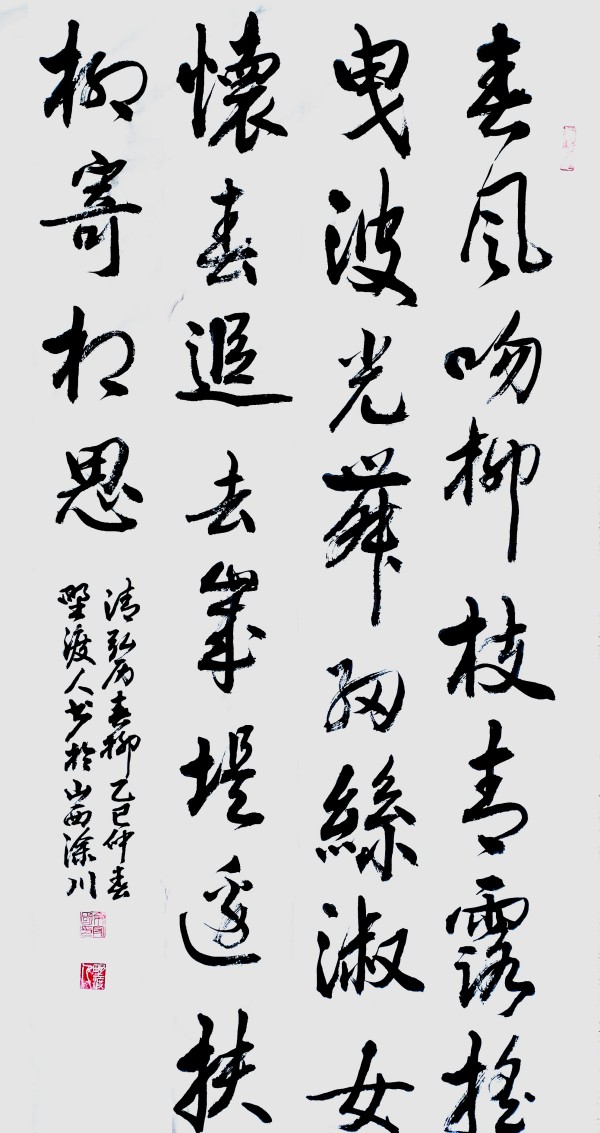 春风吻柳枝青露搖
曳波光舞細絲淑女
懷春追去歲堤邊扶
柳寄相思
清弘历春柳乙巳仲春
野渡人书於山西涂川